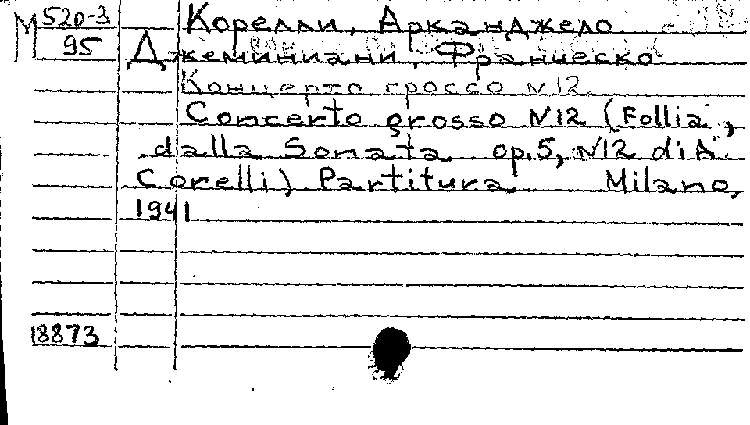 М 520-3 Корелли, Арканджело
95 Джеминиани, Франческо
Концерто гроссо N12.
Concerto grosso N12 (Follia,
dalla Sonata op.5, N12 di A.
Corelli) Partitura Milano,
1941
18873